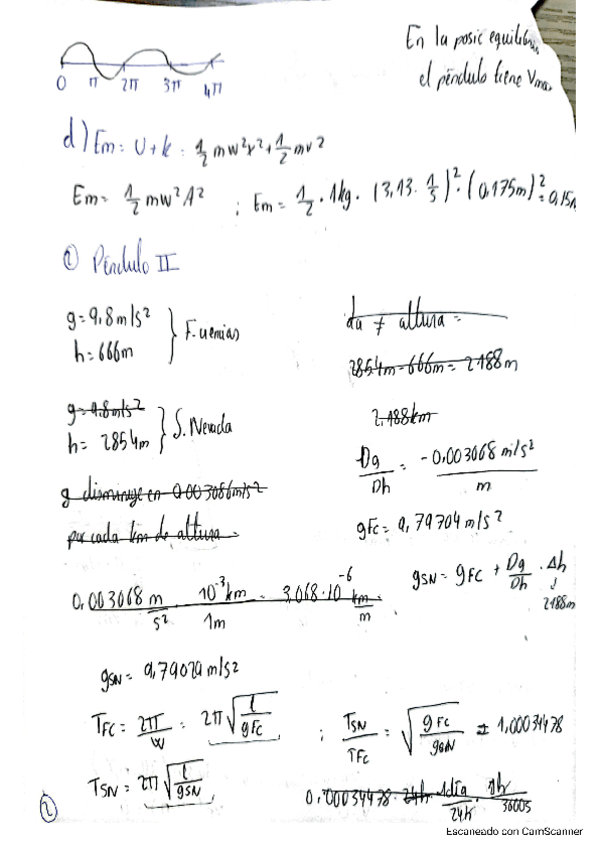 En la posic equilibrio,
el péndulo tiene Vmax
0 π 2π 3π 4π
d) Em = U + k = 1/2 mw²x² + 1/2 mv²
Em = 1/2 mw²A² ; Em = 1/2 · 1kg · (3,13 · 1/s)² · (0,175m)² = 0,15
② Péndulo II
g = 9,8 m/s²
h = 666m } F.
da ≠ altura =
2854m - 666m = 2188m
g = 9.8 m/s²
h = 2854m } S. Nevada
2.188km
g disminuye en 0.003086m/s²
por cada km de altura.
Dg/Dh = -0,003068 m/s² / m
gFc = 9,79704 m/s²
0,003068 m/s² · 10⁻³km/1m = 3,068·10⁻⁶ km/m
gSN = gFC + Dg/Dh · Δh
↓
2188m
gSN = 9,79029 m/s²
TFC = 2π/w = 2π√(l/gFC) ; TSN/TFC = √(gFC/gSN) = 1,00034478
TSN = 2π√(l/gSN)
0,00034478 24h 1día/24h · 1h/3600s
②
Escaneado con CamScanner